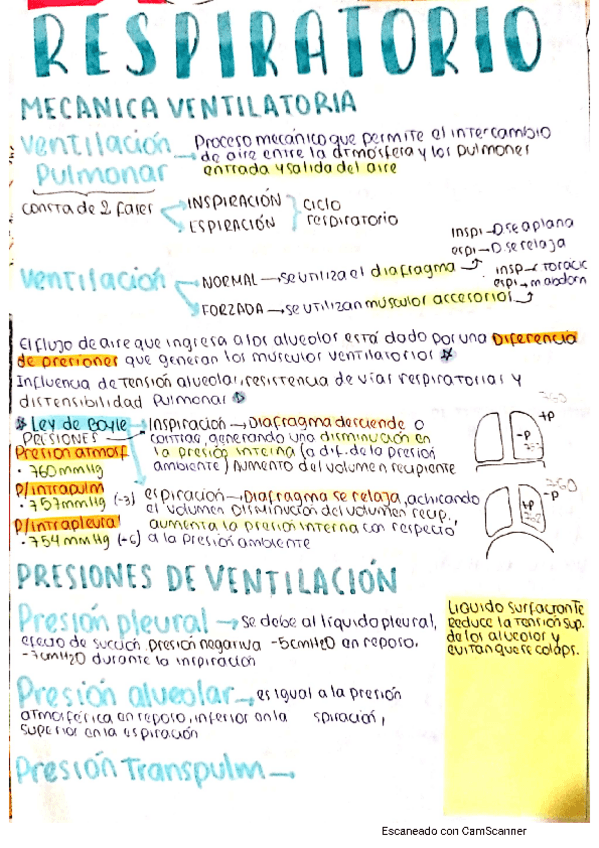 RESPIRATORIO
MECANICA VENTILATORIA
Ventilación Pulmonar
→ Proceso mecánico que permite el intercambio
de aire entre la atmósfera y los pulmones
entrada y salida del aire
consta de 2 fases
INSPIRACIÓN
ESPIRACIÓN
ciclo
respiratorio
inspi→ se aplana
espi→ se relaja
Ventilación
NORMAL → se utiliza el diafragma
insp→ toracic
espi→ m abdom
FORZADA → se utilizan musculos accesorios
El flujo de aire que ingresa a los alveolos está dado por una Diferencia
de presiones que generan los musculos ventilatorios
Influencia de tensión alveolar, resistencia de vías respiratorias y
distensibilidad pulmonar
Ley de Boyle
Inspiración → Diafragma desciende o
contrae, generando una disminución en
la presión interna (a dif. de la presión
ambiente) Aumento del volumen recipiente
PRESIONES
Presion atmosf
· 760 mmHg
P/intrapulm
· 757 mmHg (-3)
P/intrapleural
· 754 mmHg (-6)
espiración → Diafragma se relaja, achicando
el volumen Disminución del volumen recip.,
aumenta la presión interna con respecto
a la presión ambiente
760
+P
-P
760
-P
+P
PRESIONES DE VENTILACIÓN
Presión pleural → Se debe al líquido pleural,
efecto de succión. presión negativa -5cmH2O en reposo.
-7cmH2O durante la inspiración
Presión alveolar → es igual a la presión
atmosférica en reposo, inferior en la spiración,
superior en la espiración
Presión Transpulm →
Liquido surfactante
Reduce la tensión sup.
de los alveolos y
evitan que se colaps.
Escaneado con CamScanner